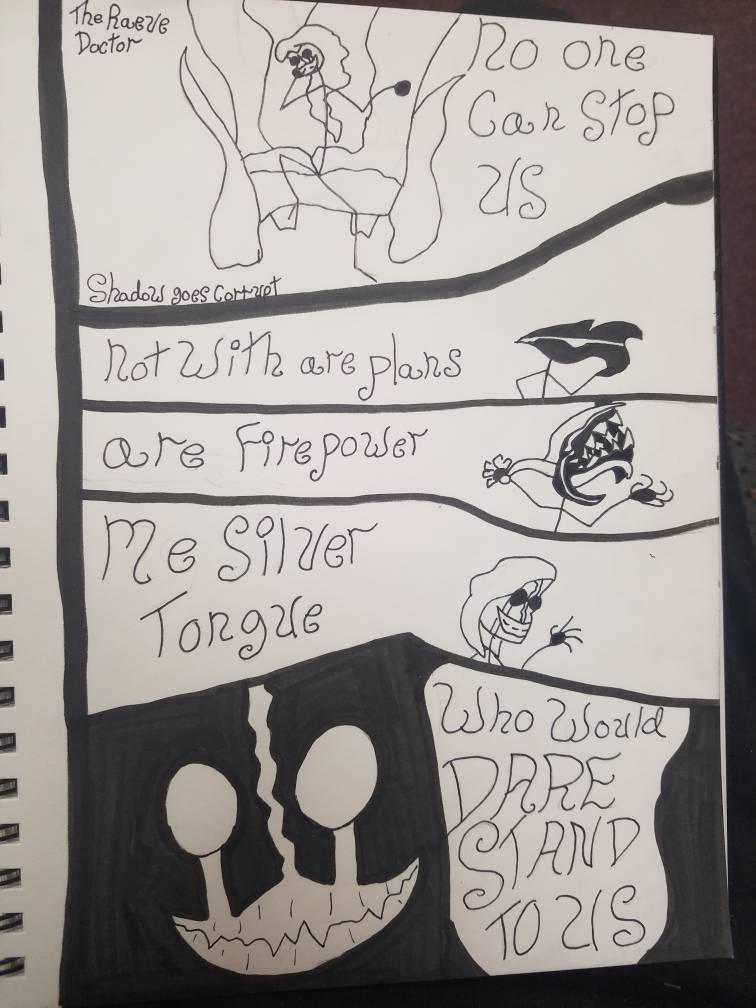 The Raeve
Doctor
No one
Can Stop
US
Shadow goes Corrupt
Not With are plans
are Firepower
Me Silver
Tongue
Who Would
DARE
STAND
TO US